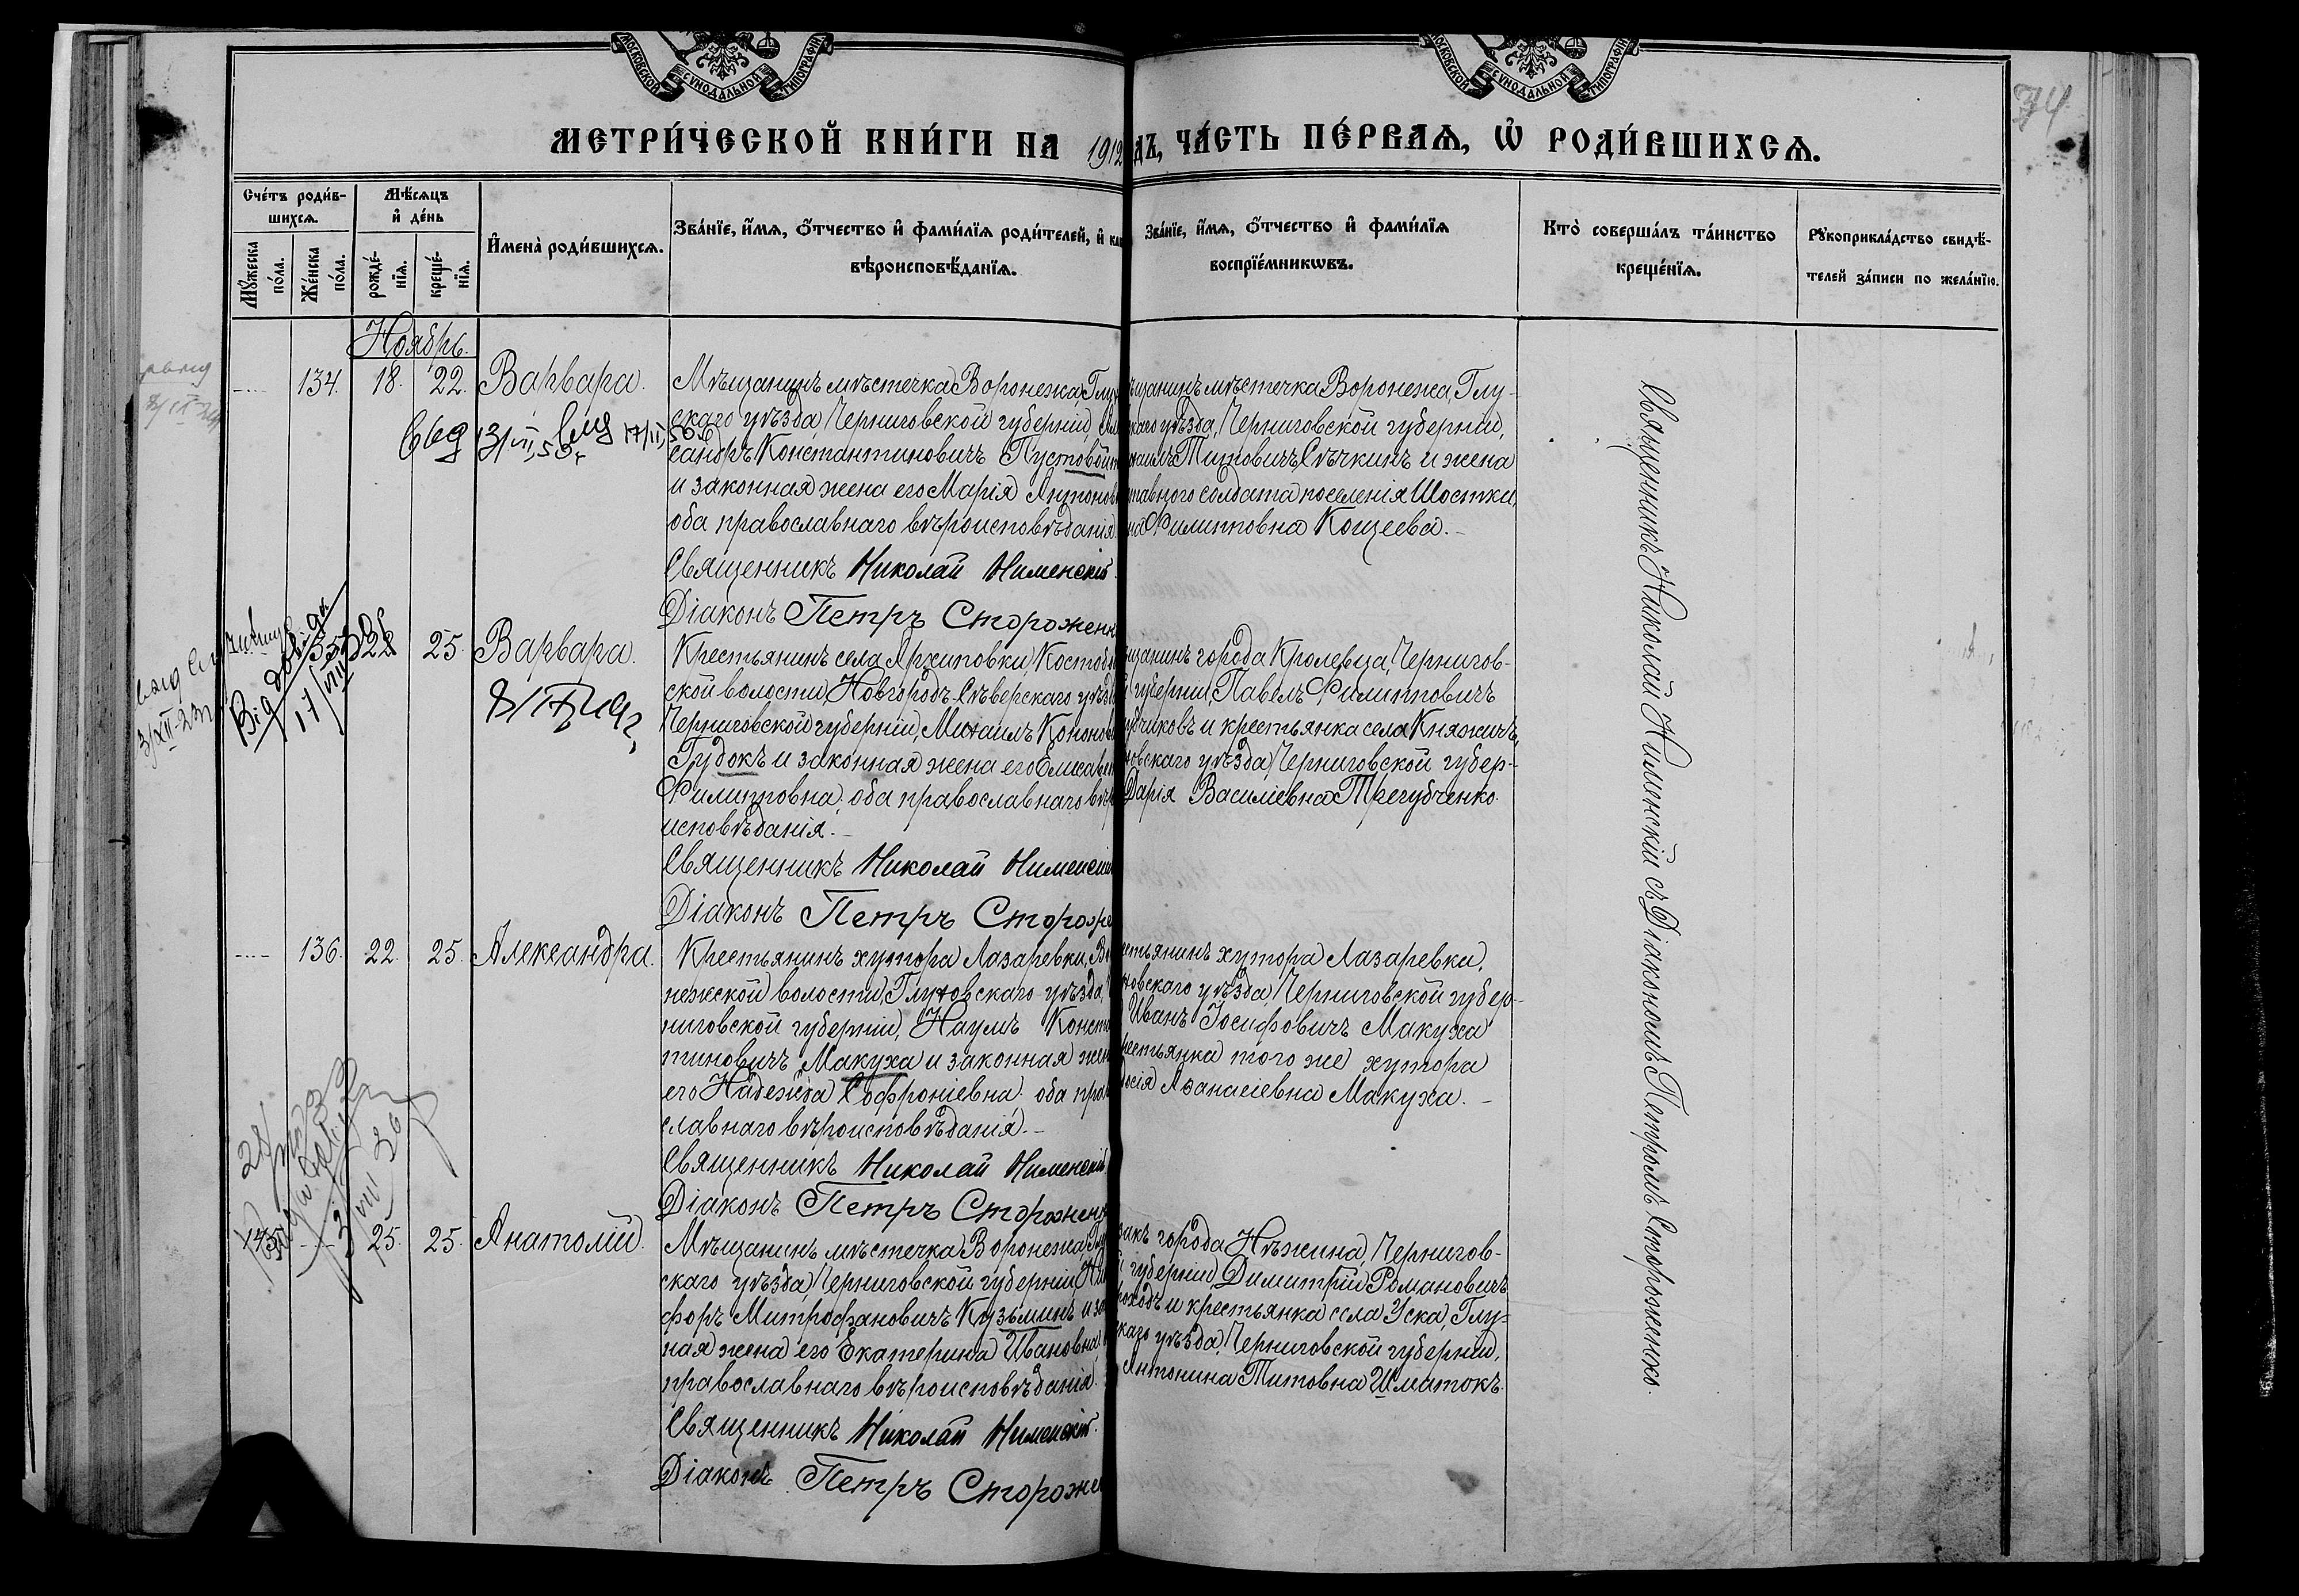 МОСКОВСКОЙ СѴНОДАЛЬНОЙ ТИПОГРАФІИ
МОСКОВСКОЙ СѴНОДАЛЬНОЙ ТИПОГРАФІИ
74
МЕТРИ́ЧЕСКОЙ КНИ́ГИ НА 1912
ДЪ, ЧА́СТЬ ПЕ́РВАѦ, Ѡ҆ РОДИ́ВШИХСѦ.
Сче́тъ роди́в-
шихсѧ.
Мꙋ́жеска по́ла.
Же́нска по́ла.
Мѣ́сѧцъ
и҆ де́нь
рожде́-
нїѧ.
креще́-
нїѧ.
И҆мена̀ роди́вшихсѧ.
Зва́нїе, и҆́мѧ, ѻ҆́тчество и҆ фами́лїѧ роди́телей, и҆ как
вѣроисповѣ́данїѧ.
Зва́нїе, и҆́мѧ, ѻ҆́тчество и҆ фами́лїѧ
воспрїе́мникѡвъ.
Кто̀ соверша́лъ та́инство
креще́нїѧ.
Рꙋкоприкла́дство свидѣ́-
телей за́писи по жела́нїю.
Ноябрь.
134. 18. 22. Варвара.
Мѣщанинъ мѣстечка Воронежа, Глух
скаго уѣзда, Черниговской губерніи, Ал
сандръ Константиновичъ Пустовойт
и законная жена его Марія Антонов
оба православнаго вѣроисповѣданія.
Священникъ Николай Нименскій.
Діаконъ Петръ Стороженк
ѣщанинъ мѣстечка Воронежа, Глу-
скаго уѣзда, Черниговской губерніи,
хаилъ Титовичъ Свѣчкинъ и жена
тавного солдата поселенія Шостки,
на Филипповна Кощеева.
135 22 25. Варвара.
Крестьянинъ села Архиповки, Костобо
ской волости, Новгородъ-Сѣверскаго уѣзд
Черниговской губерніи, Михаилъ Кононов
Гудокъ и законная жена его Елисавет
Филипповна, оба православнаго вѣро
исповѣданія.
Священникъ Николай Нименскій
Діаконъ Петръ Сторože
щанинъ города Кролевца, Чернигов-
губерніи, Павелъ Филипповичъ
убчиковъ и крестьянка села Княжичъ,
овскаго уѣзда, Черниговской губер-
Дарія Василіевна Трегубченко.
136. 22. 25. Александра.
Крестьянинъ хутора Лазаревки, Во
нежской волости, Глуховскаго уѣзда,
ниговской губерніи, Наумъ Конста
тиновичъ Макуха и законная жен
его Надежда Софроніевна: оба прав
славнаго вѣроисповѣданія.
Священникъ Николай Нименскій
Діаконъ Петръ Сторожен
естьянинъ хутора Лазаревки,
ховскаго уѣзда, Черниговской губер-
Иванъ Іосифовичъ Макуха
рестьянка того же хутора
осія Аѳанасіевна Макуха.
25. 25. Анатолій.
Мѣщанинъ мѣстечка Воронежа, Глу
скаго уѣзда, Черниговской губерніи, Ни
форъ Митрофановичъ Кузьминъ и за
ная жена его Екатерина Ивановна,
православнаго вѣроисповѣданія.
Священникъ Николай Нименскій.
Діаконъ Петръ Стороже
закъ города Нѣжина, Чернигов-
губерніи, Димитрій Романовичъ
роходъ и крестьянка села Уска, Глу-
скаго уѣзда, Черниговской губерніи,
Антонина Титовна Шматокъ.
Священникъ Николай Нименскій съ Діакономъ Петромъ Стороженко.